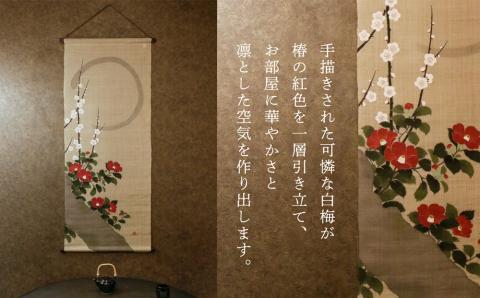 手描きされた可憐な白梅が
椿の紅色を一層引き立て、
お部屋に華やかさと
凛とした空気を作り出します。